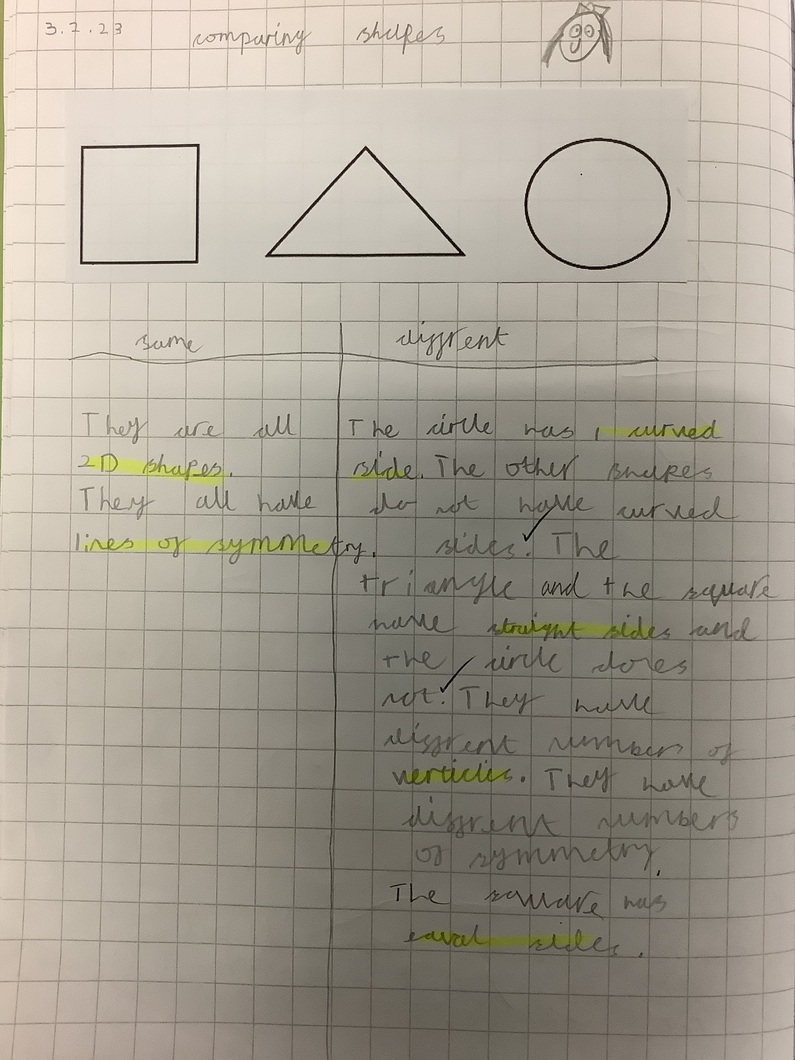 3.7.23 comparing shapes
same
diffrent
They are all
2D shapes.
They all have
lines of symmetry.
The circle has 1 curved
side. The other shapes
do not have curved
sides. The
triangle and the square
have straight sides and
the circle dores
not. They have
diffrent number of
verticies. They have
diffrent numbers
of symmetry.
The square has
equal sides.